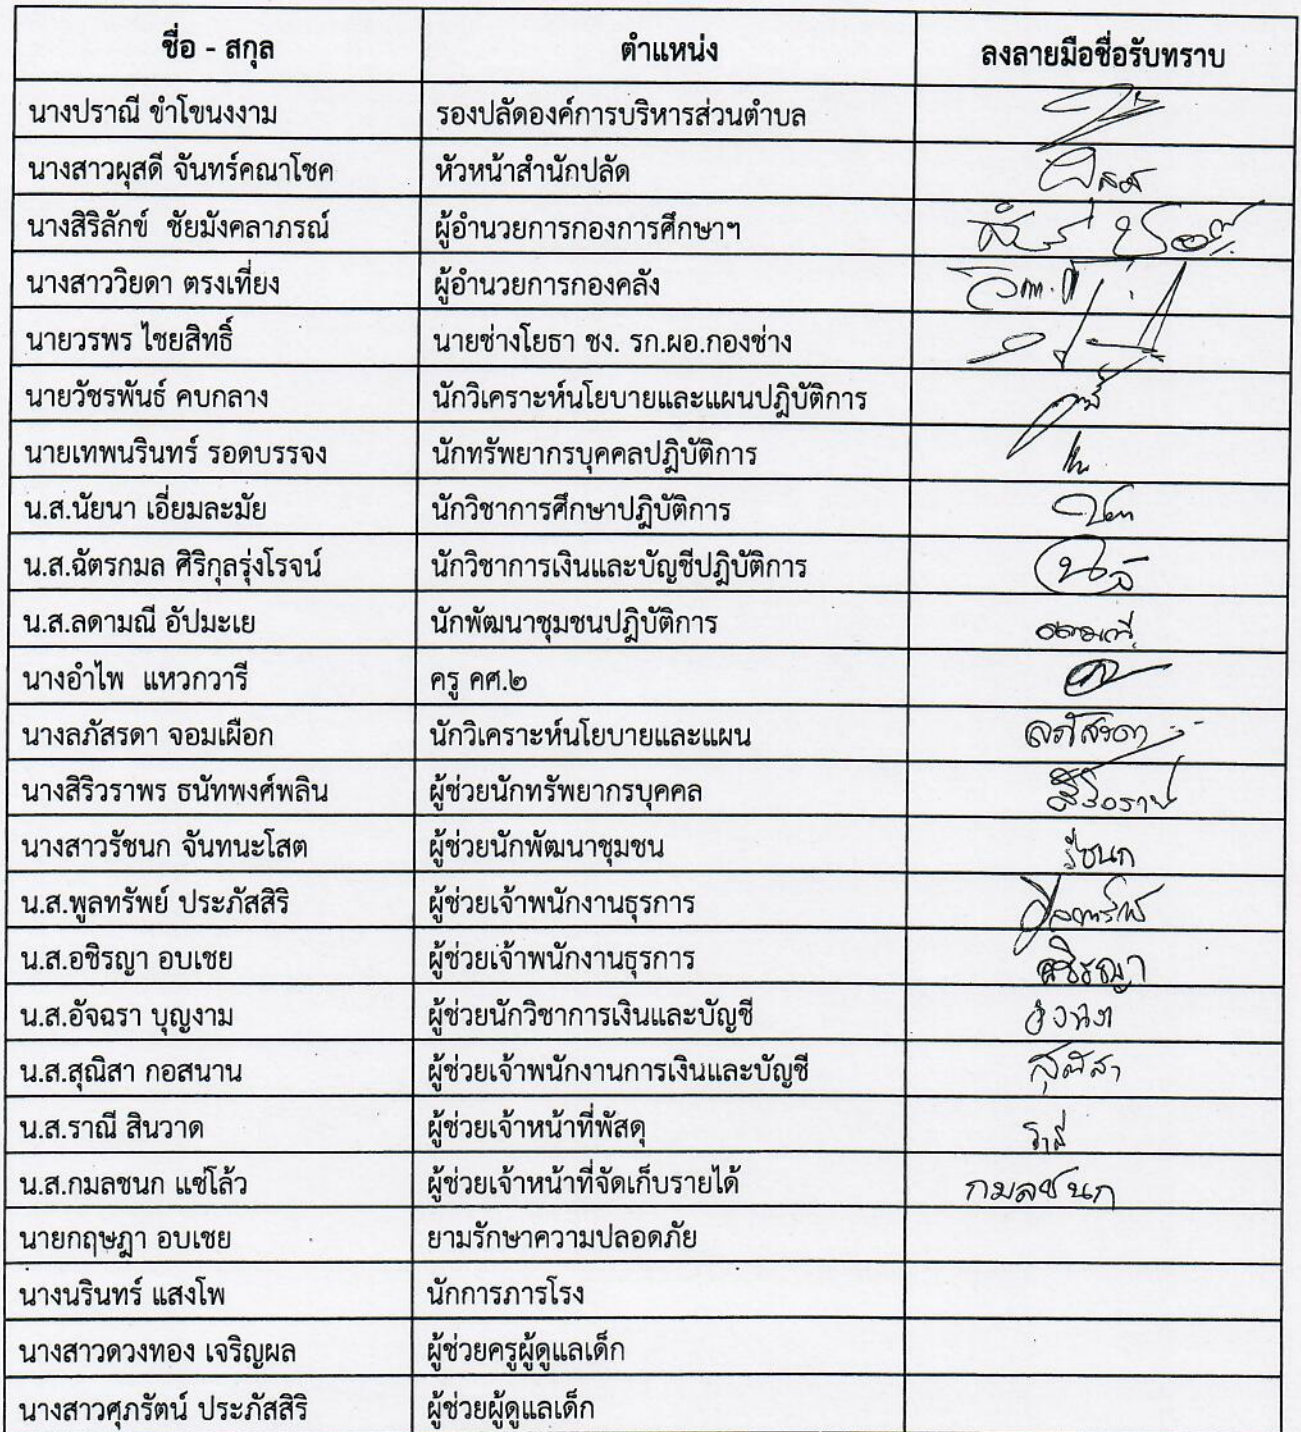 ชื่อ - สกุล ตำแหน่ง ลงลายมือชื่อรับทราบ
นางปราณี ขำโขนงงาม รองปลัดองค์การบริหารส่วนตำบล
นางสาวผุสดี จันทร์คณาโชค หัวหน้าสำนักปลัด
นางสิริลักข์ ชัยมังคลาภรณ์ ผู้อำนวยการกองการศึกษาฯ
นางสาววิยดา ตรงเที่ยง ผู้อำนวยการกองคลัง
นายวรพร ไชยสิทธิ์ นายช่างโยธา ชง. รก.ผอ.กองช่าง
นายวัชรพันธ์ คบกลาง นักวิเคราะห์นโยบายและแผนปฎิบัติการ
นายเทพนรินทร์ รอดบรรจง นักทรัพยากรบุคคลปฎิบัติการ
น.ส.นัยนา เอี่ยมละมัย นักวิชาการศึกษาปฎิบัติการ
น.ส.ฉัตรกมล ศิริกุลรุ่งโรจน์ นักวิชาการเงินและบัญชีปฎิบัติการ
น.ส.ลดามณี อัปมะเย นักพัฒนาชุมชนปฎิบัติการ
นางอำไพ แหวกวารี ครู คศ.๒
นางลภัสรดา จอมเผือก นักวิเคราะห์นโยบายและแผน ลภัสรดา
นางสิริวราพร ธนัทพงศ์พลิน ผู้ช่วยนักทรัพยากรบุคคล
นางสาวรัชนก จันทนะโสต ผู้ช่วยนักพัฒนาชุมชน รัชนก
น.ส.พูลทรัพย์ ประภัสสิริ ผู้ช่วยเจ้าพนักงานธุรการ
น.ส.อชิรญา อบเชย ผู้ช่วยเจ้าพนักงานธุรการ อชิรญา
น.ส.อัจฉรา บุญงาม ผู้ช่วยนักวิชาการเงินและบัญชี
น.ส.สุณิสา กอสนาน ผู้ช่วยเจ้าพนักงานการเงินและบัญชี สุณิสา
น.ส.ราณี สินวาด ผู้ช่วยเจ้าหน้าที่พัสดุ ราณี
น.ส.กมลชนก แซ่โล้ว ผู้ช่วยเจ้าหน้าที่จัดเก็บรายได้ กมลชนก
นายกฤษฎา อบเชย ยามรักษาความปลอดภัย
นางนรินทร์ แสงโพ นักการภารโรง
นางสาวดวงทอง เจริญผล ผู้ช่วยครูผู้ดูแลเด็ก
นางสาวศุภรัตน์ ประภัสสิริ ผู้ช่วยผู้ดูแลเด็ก